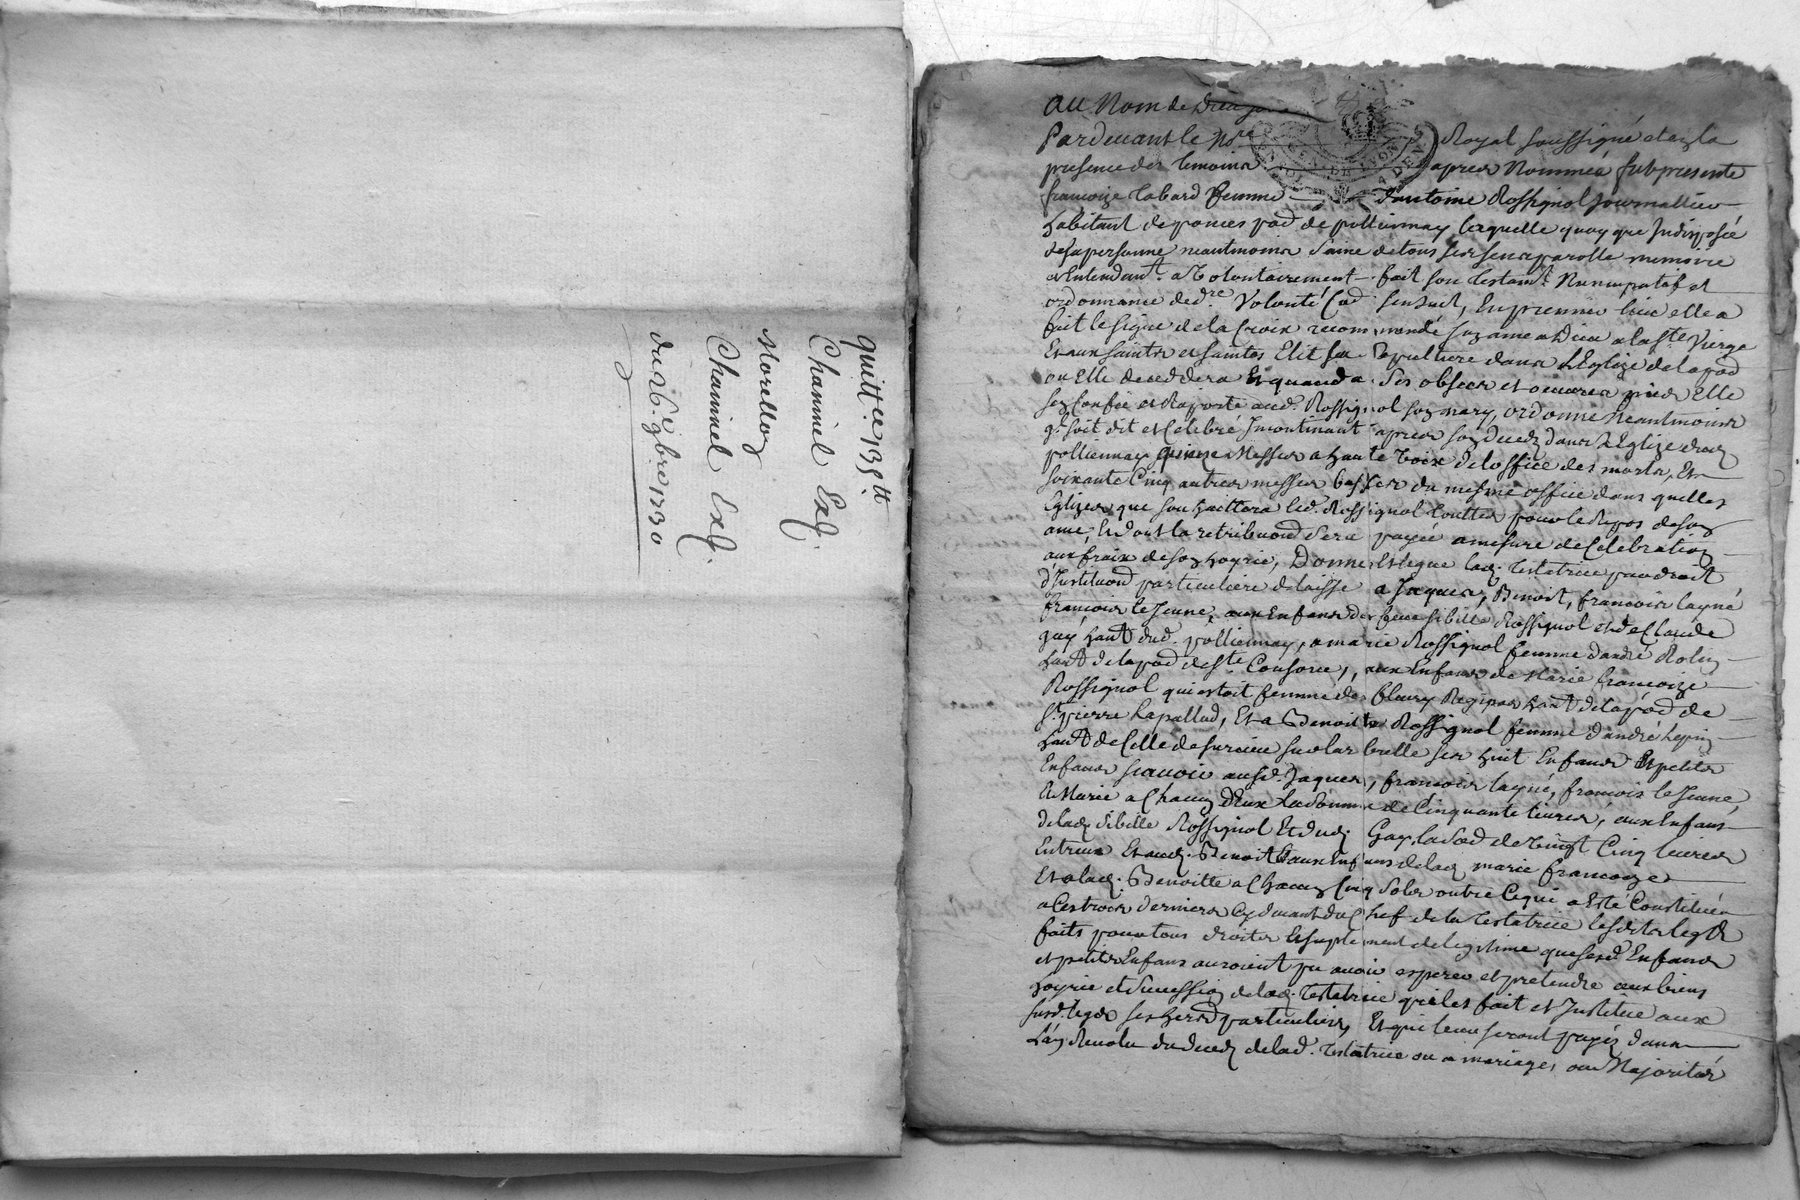 quitt.ce 135 tt
Channinel Exq.
Morellon
Channinel Exq.
du 26 9bre 1730
Au Nom de Dieu
Pardevant le No.re Royal soussigné et en la
presence des temoins apres Nommés fut presente
françoize Tabard femme d'antoine Rossignol journallier
habitant de pod de pollionnay laquelle quoy que Indisposée
de sa personne neantmoins saine de tous ses sens parolle memoire
et Entendem.t a Volontairement fait son testam.t Nuncupatif et
ordonnance de d.re Volonté Co.e s'ensuit, En premier lieu elle a
fait le signe de la Croix recommendé son ame a Dieu a la S.te Vierge
Et aux saints et saintes Elit sa sepulture dans L'Eglize de la pod
ou Elle deceddera Et quand a ses obseques et oeuvres pies Elle
s'en Confie et Raporte aud. Rossignol son mary, ordonne Neantmoins
q. soit dit et Celebré Incontinant apres son deced dans L'Eglize dud
pollionnay quinze Messes a haute voix de l'office des morts, Et
soixante Cinq autres messes basses du mesme office dans quelles
Eglizes que souhaittera led. Rossignol touttes pour le Repos de son
ame, Et dont la retribuond sera payée a mesure de Celebration
aux fraix de son hoyrie, Donne Et legue lad. Testatrice par droit
d'Instituond particuliere delaisse a Jaques, Benoit, francois layné
francois le Jeune, aux Enfans de feue sibille Rossignol et de Claude
gay hant dud. pollionnay, a marie Rossignol femme d'andré Rolin
hant de la pod de S.te Consorce, aux Enfans de Marie francoize
Rossignol qui estoit femme de fleury Regipas hant de la pod de
S.t pierre Lapallud, Et a Benoitte Rossignol femme d'andré Lepin
hant de Celle de sur ses huit Enfans Et petits
Enfans scavoir ausd. Jaques, francois layné, francois le Jeune,
Et Marie a Chacun d'Eux la somme de Cinquante livres, aux Enfans
de lad. sibille Rossignol Et dud. Gay la sod de Vingt Cinq livres
Entreux Et aud. Benoit aux Enfans de lad. marie francoize
Et a lad. Benoitte a Chacun Cinq sols outre Ce qui a esté Constitué
a Ces trois derniers Cy devant du Chef de la Testatrice lesdits legts
faits pour tous droits Et suplement de legitime que sesd. Enfans
et petits Enfans auroient pu avoir esperer et pretendre aux biens
hoyrie et Succession de lad. Testatrice qui les fait et Institue aux
susd. legts ses herds particuliers, Et qui leur seront payés dans
L'an Revolu du deced de lad. Testatrice ou a mariage, ou Majorités